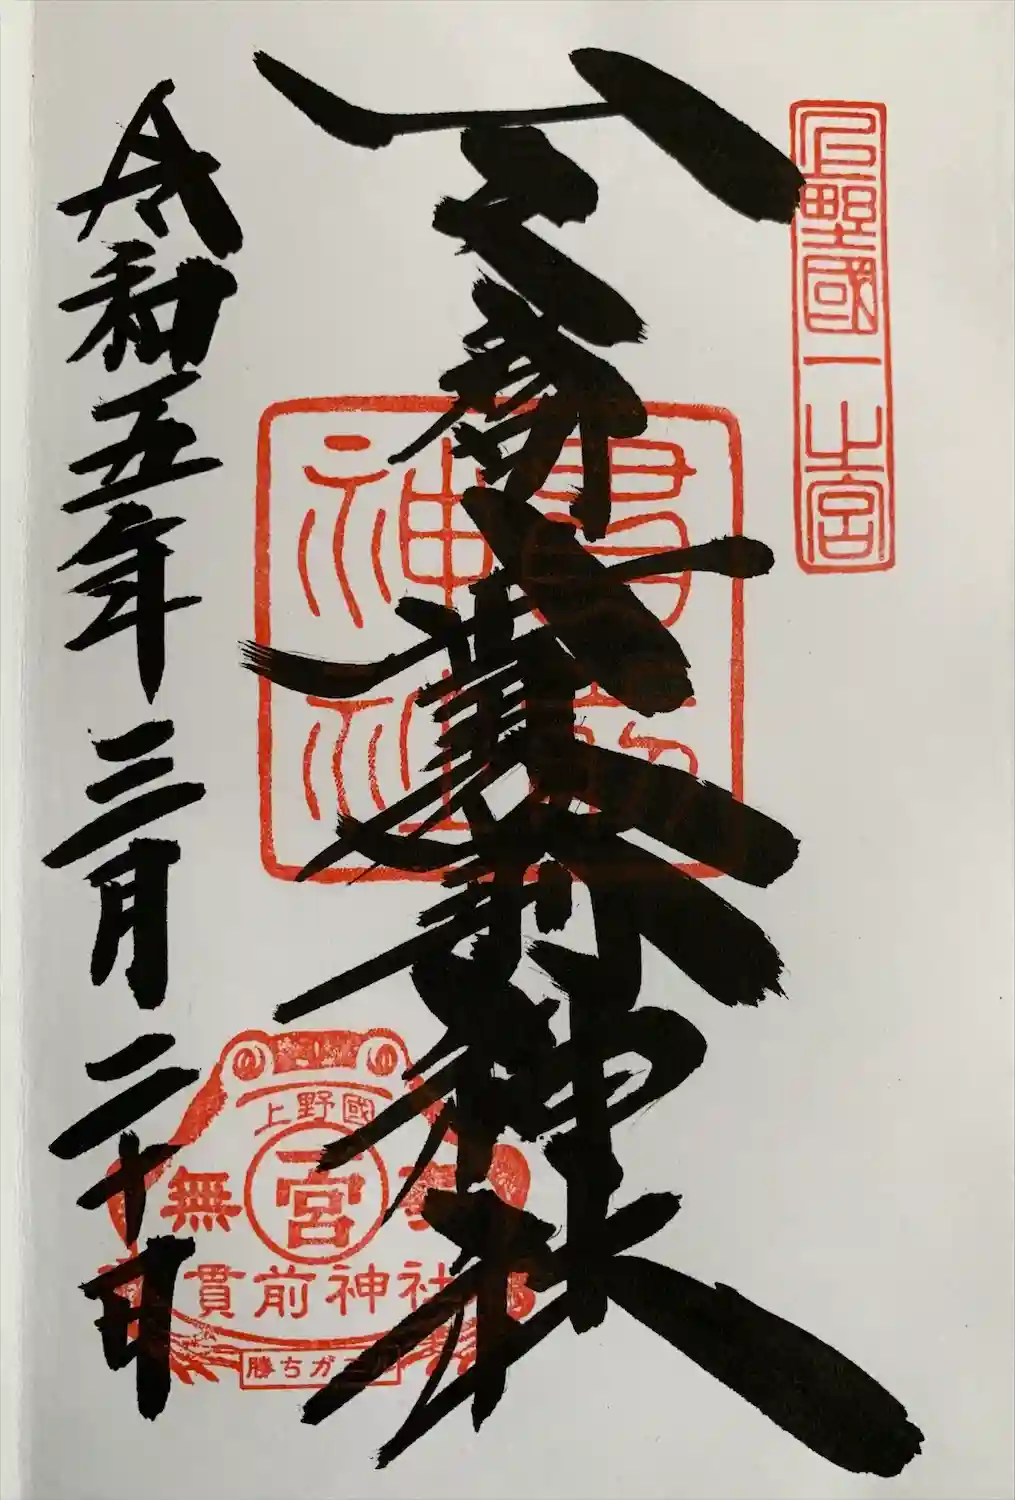 上野國一之宮
一之宮貫前神社
貫前神社
令和五年三月二十日
上野國
一宮
無事
貫前神社
勝ちガエル